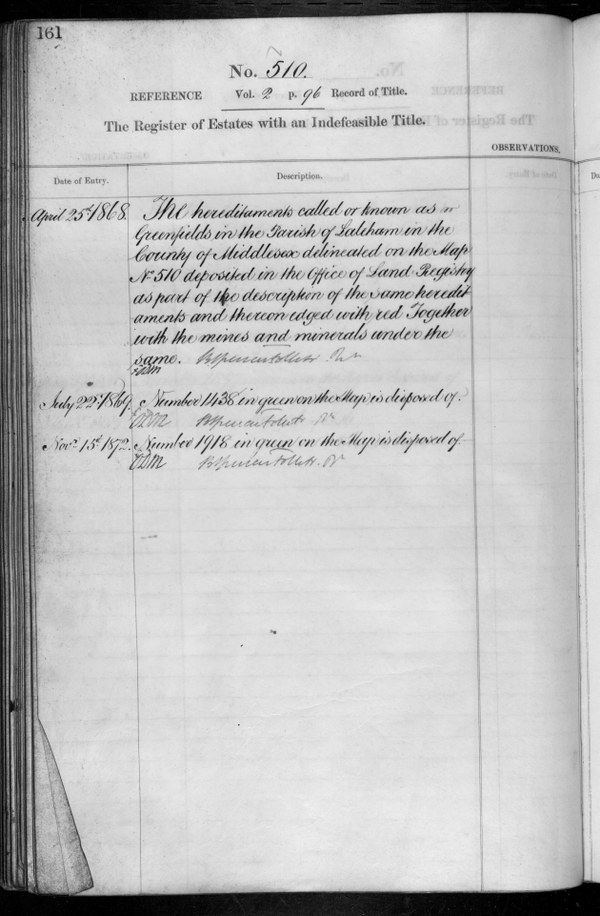 161
No. 510.
REFERENCE Vol. 2 p. 96 Record of Title.
The Register of Estates with an Indefeasible Title.
OBSERVATIONS.
Date of Entry. Description.
April 25th 1868. The hereditaments called or known as
Greenfields in the Parish of Laleham in the
County of Middlesex delineated on the Map
No 510 deposited in the Office of Land Registry
as part of the description of the same heredit
aments and thereon edged with red Together
with the mines and minerals under the
same.
July 22d 1869. Number 1438 in green on the Map is disposed of.
Novr 15th 1872. Number 1918 in green on the Map is disposed of